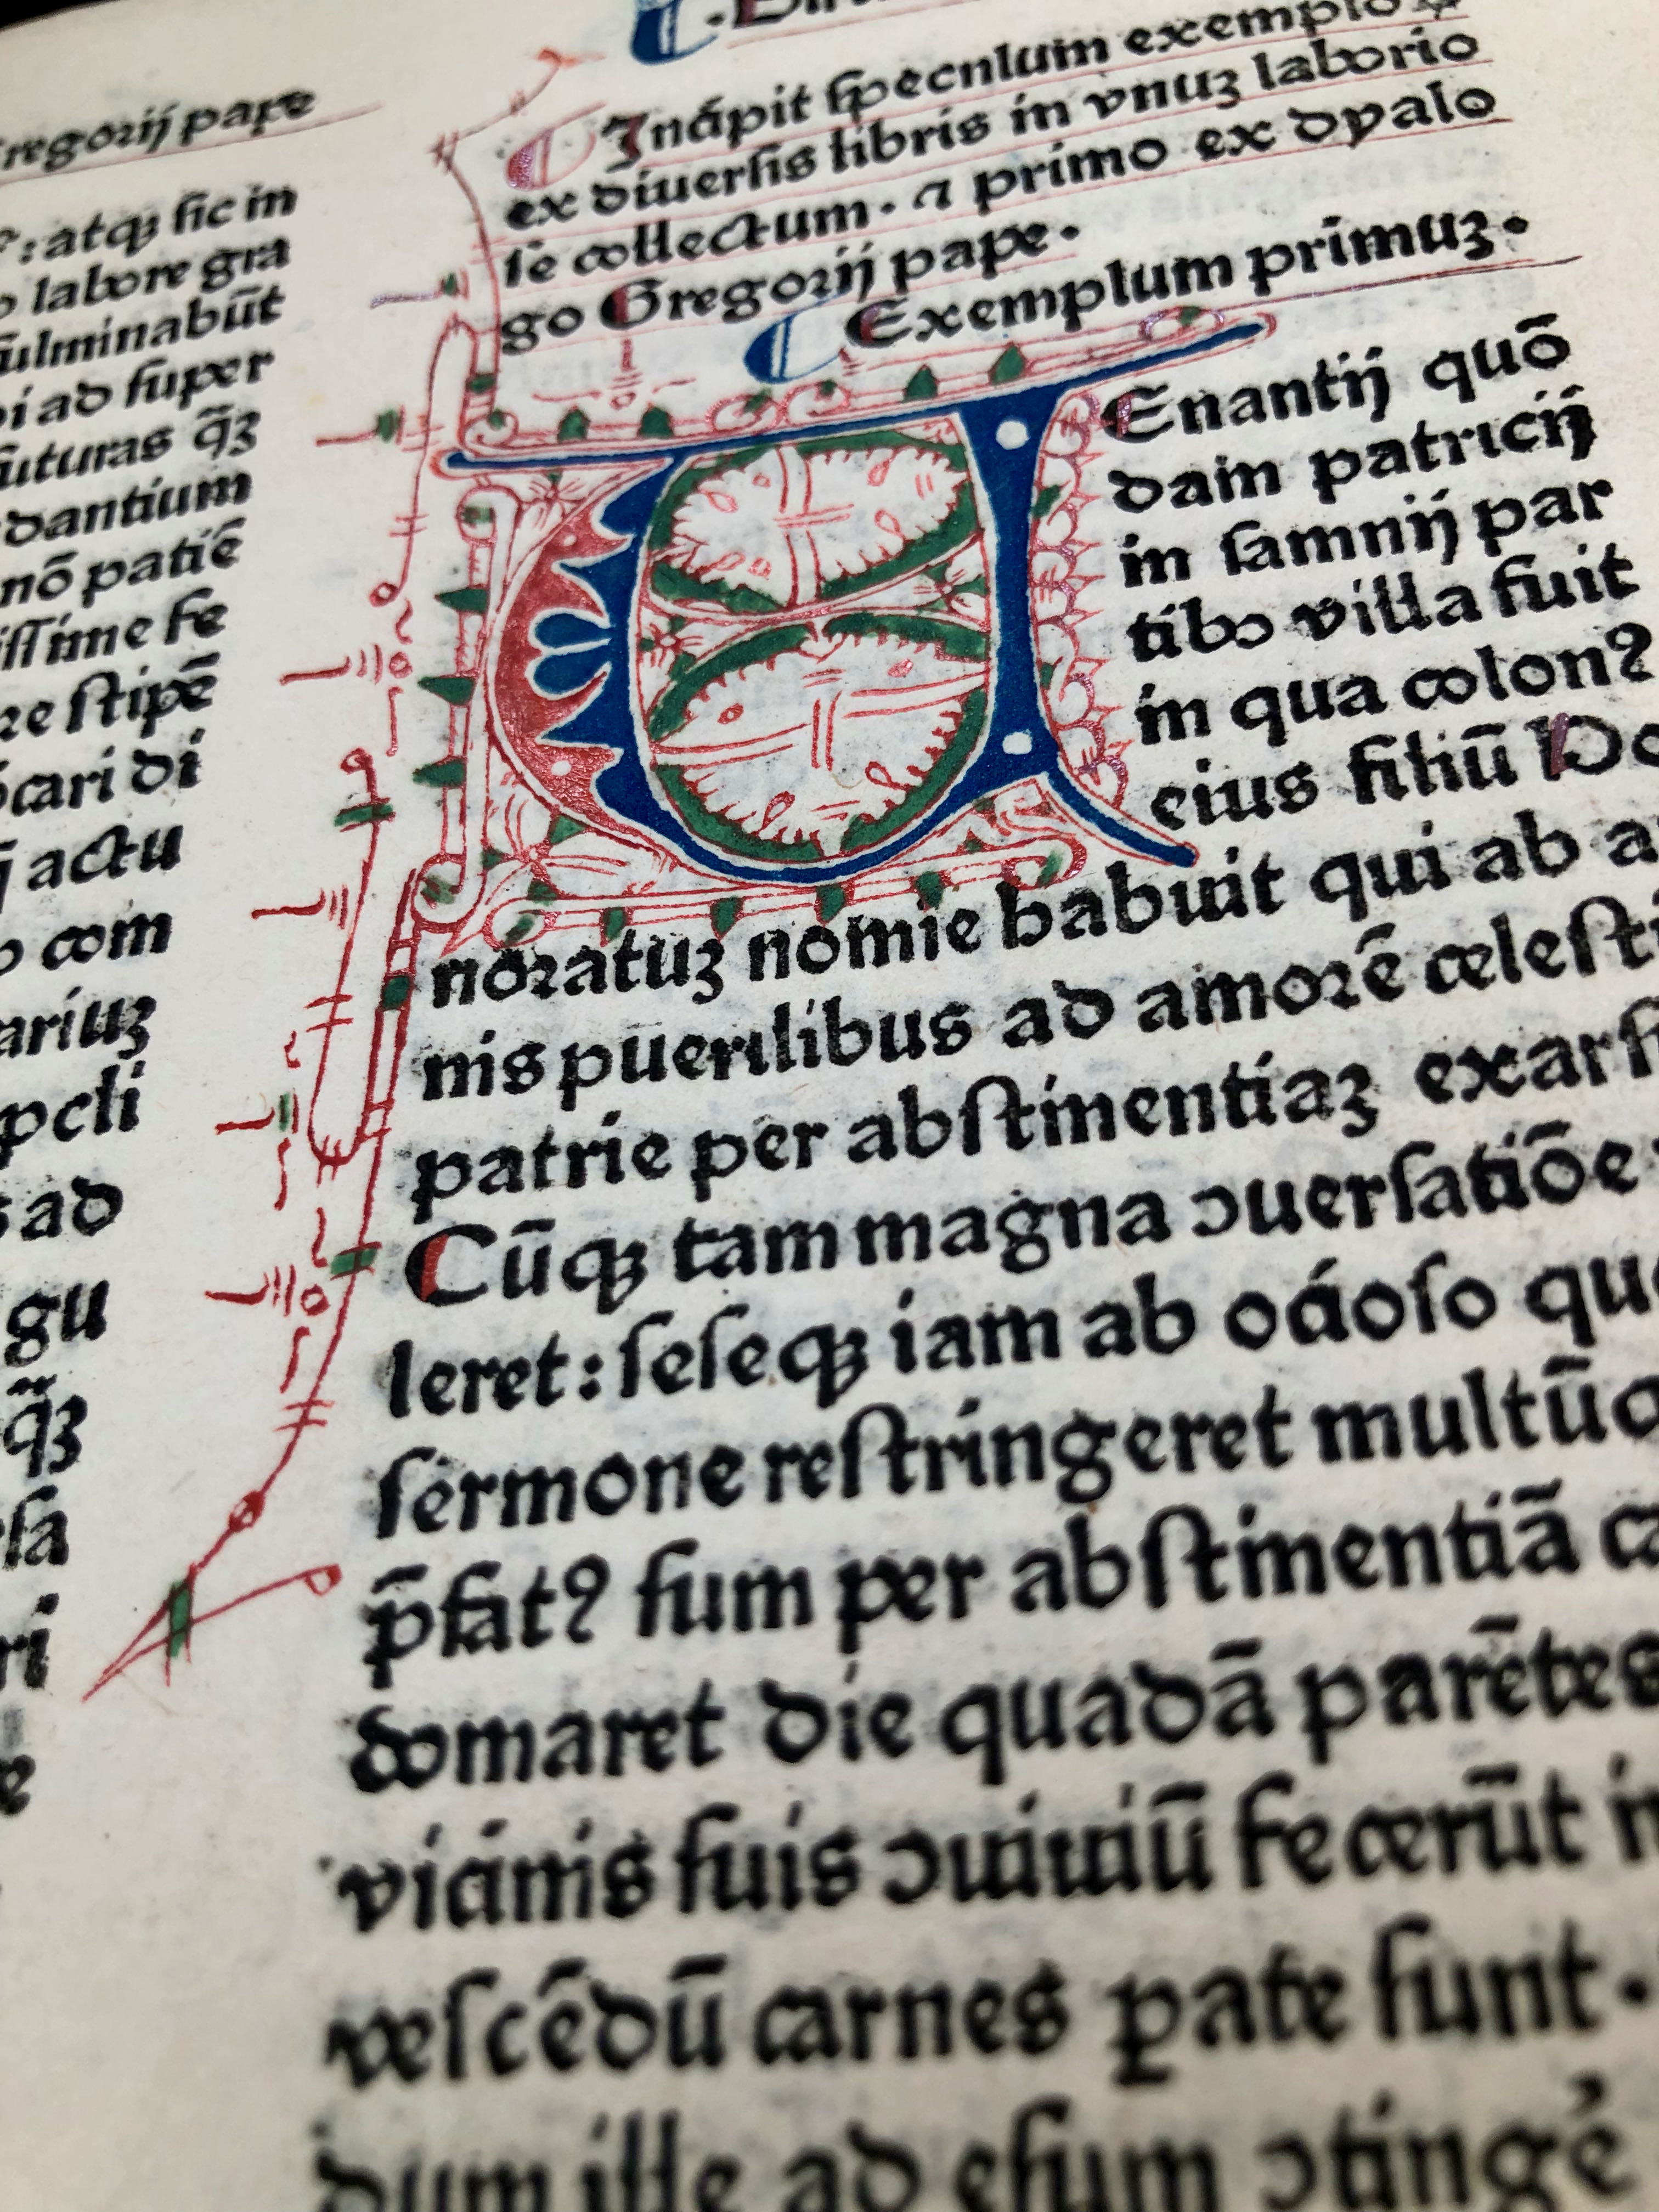 regorij pape
: atqꝫ sic in
labore gra
ulminabūt
i ad super
futuras q̄ꝫ
dantium
nō patiē
issime fe
re stipē
cari di
actu
com
ariuꝫ
pcli
ad
gu
q̄ꝫ
sa
ri
Incipit specnlum exemploꝝ
ex diuersis libris in vnuꝫ laborio
se collectum. ⁊ primo ex dyalo
go Gregorij pape.
Exemplum primuꝫ.
VEnantij quō
dam patricij
in samnij par
tibꝰ villa fuit
in qua colonꝰ
eius filiū Ho
noratuꝫ nomie habuit qui ab a
nis puerilibus ad amorē celesti
patrie per abstinentiaꝫ exarsi
Cūqꝫ tam magna ↄuersatiōe
leret: seseqꝫ iam ab ocioso quo
sermone restringeret multū
p̄fatꝰ sum per abstinentiā ca
domaret die quadā parētes
vicinis suis ↄuiuiū fecerūt in
vescēdū carnes ꝑate sunt.
dum ille ad esum ↄtinge